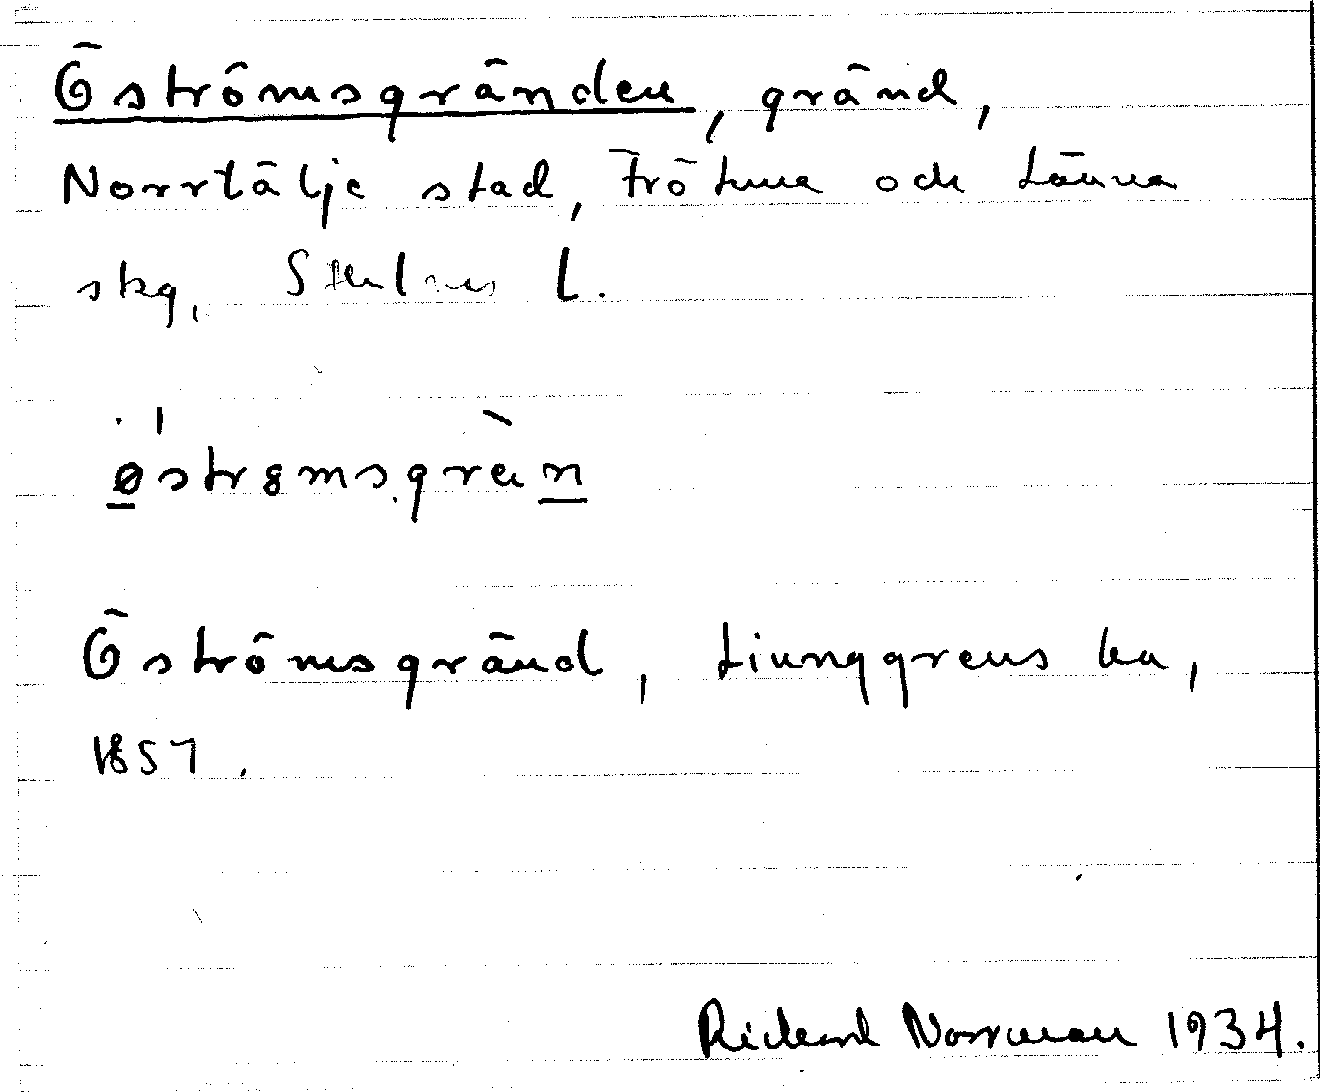 Öströmsgränden, gränd,
Norrtälje stad, Frötuna och Länna
skg, Sthlms L.
østrømsgrän
Öströmsgränd, Ljunggrens ka,
1857.
Rickard Norrman 1934.